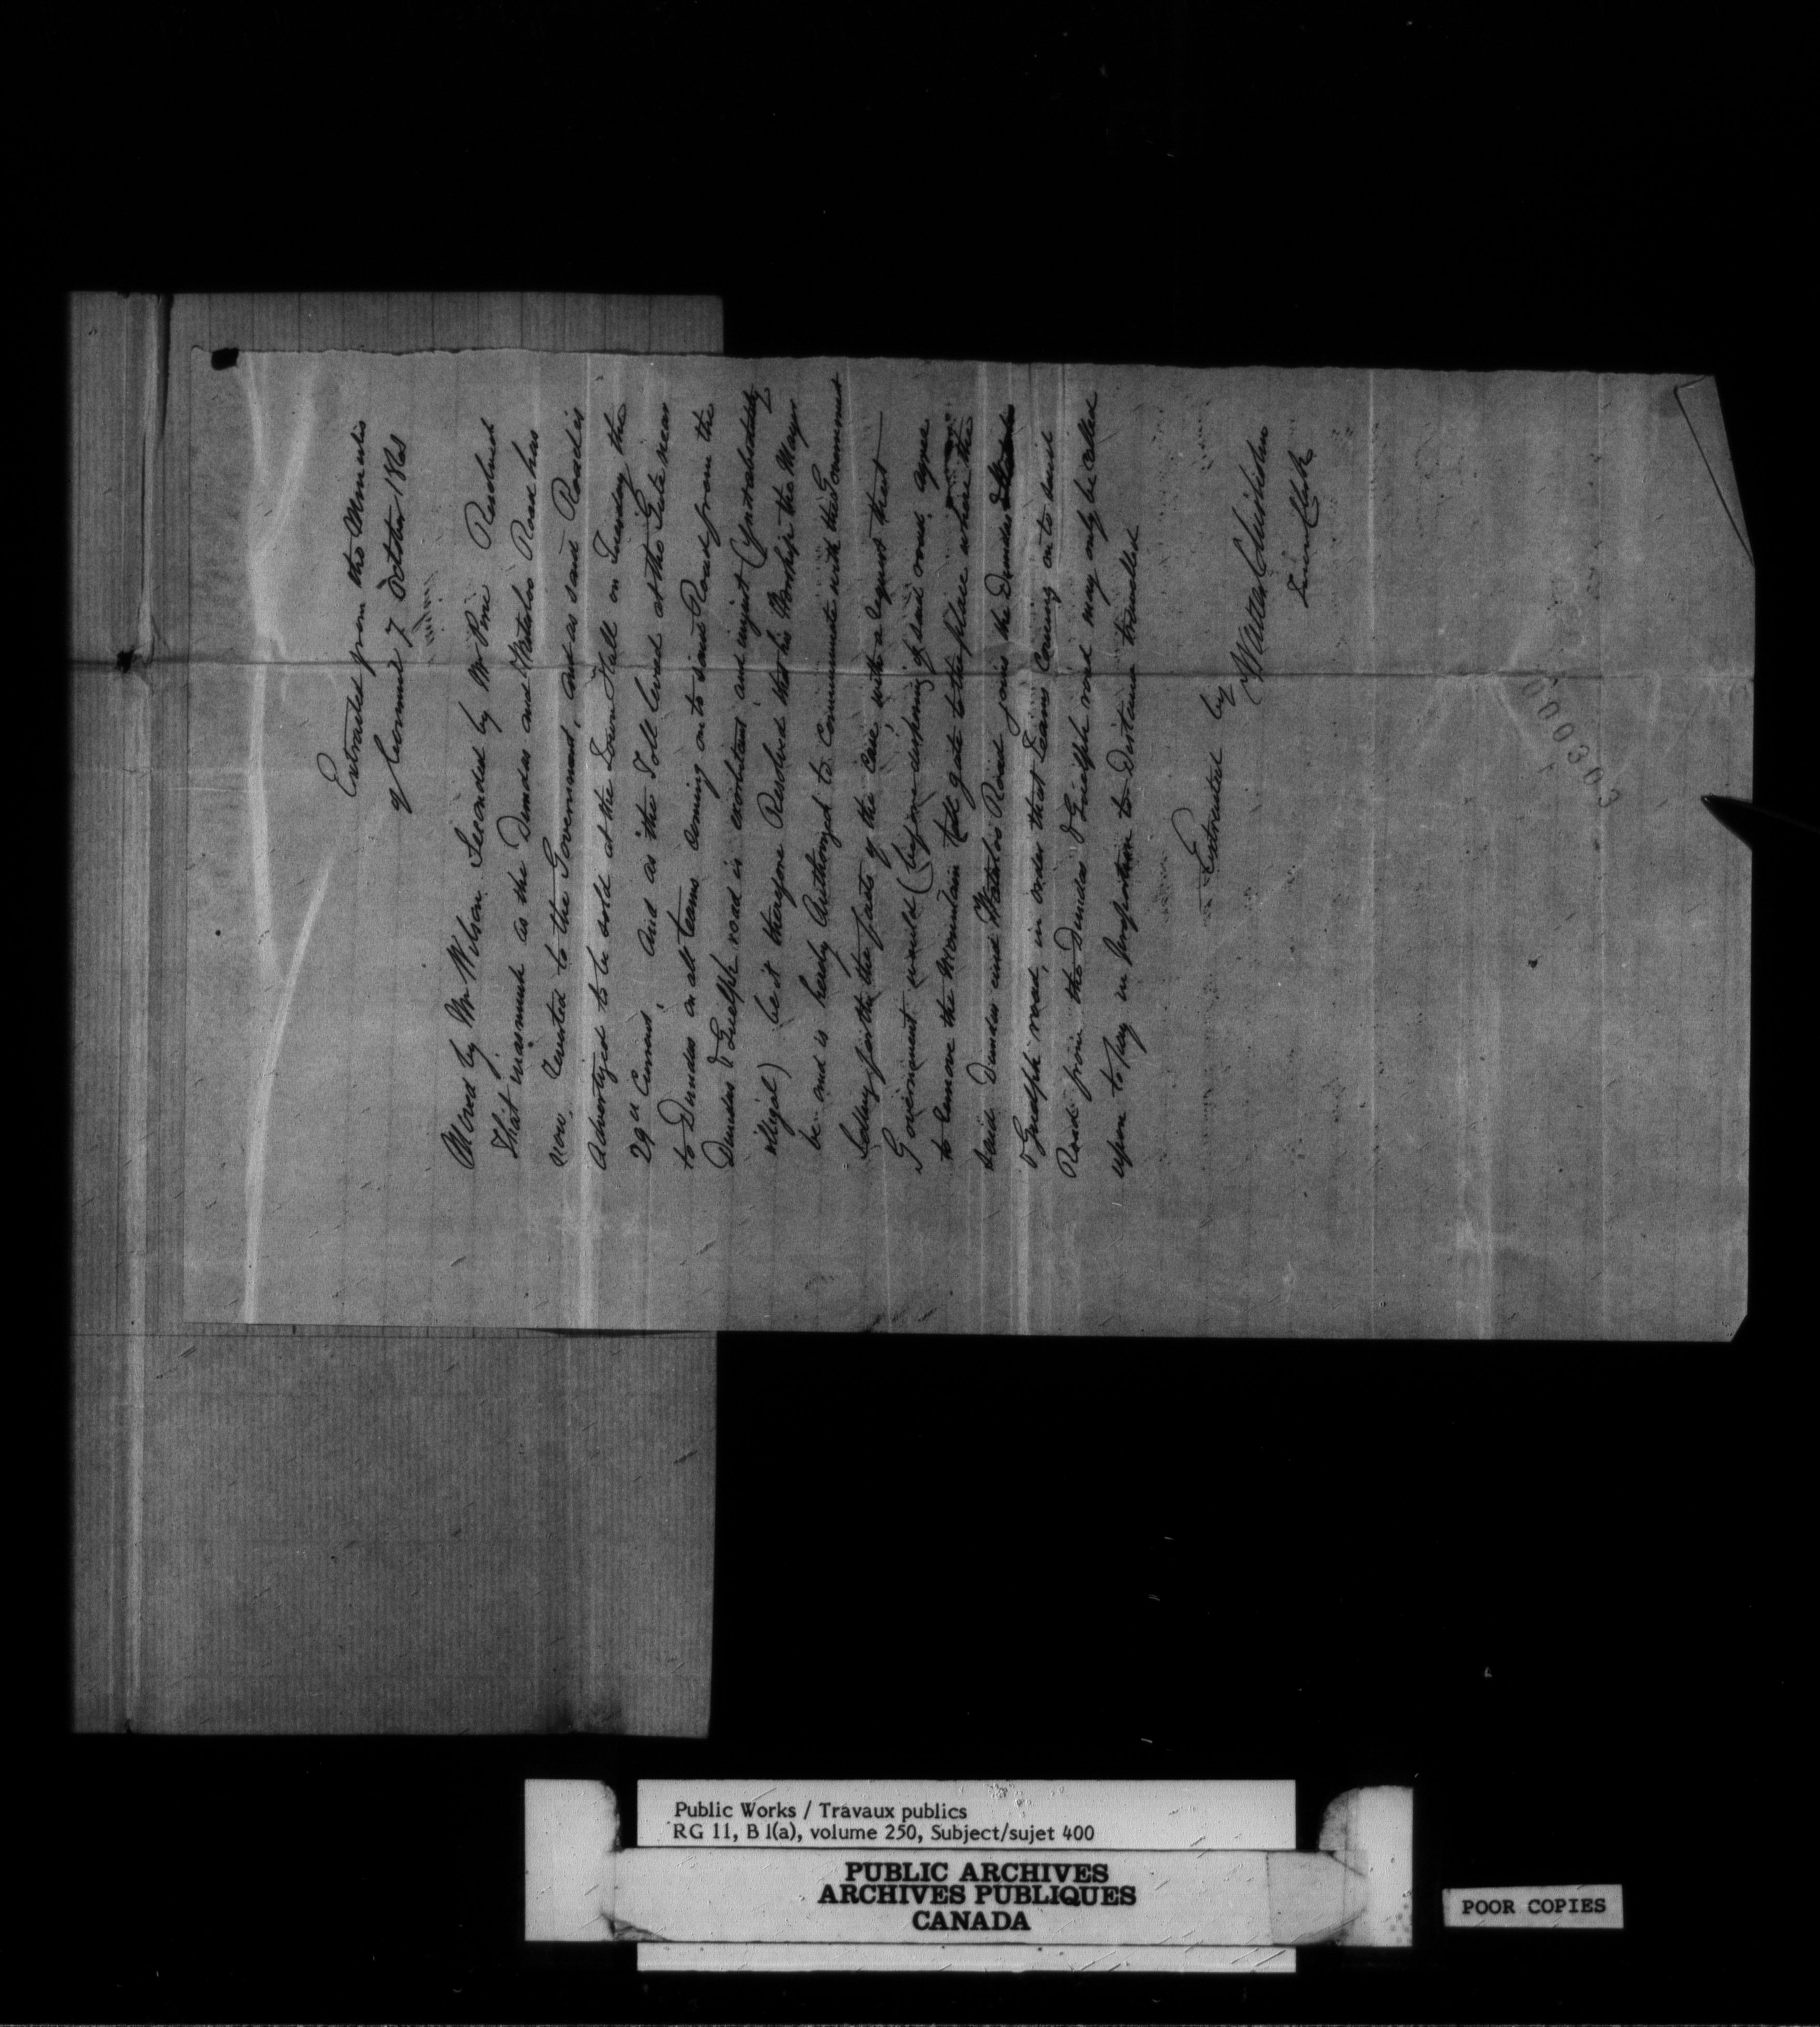 Extracted from the Minutes
of Council 7 October 18
Moved by Mr Wilson Seconded by Mr Resolved
That inasmuch as the Dundas and Waterloo Road has
now reverted to the Government, and as said Road is
Advertized to be sold at the Town Hall on Tuesday the
29th Current, And as the Toll levied at the Gate near
to Dundas on all teams coming on to said Road from the
Dundas & Guelph road is exorbitant, and unjust (
illegal) be it therefore Resolved that his Worship the Mayor
be and is hereby Authorized to Communicate with the Government
Setting forth the facts of the case, with a request that
Government would (before disposing of said road) agree
to remove the Mountain toll gate to the place where the
said Dundas and Waterloo Road joins the Dundas
& Guelph road, in order that teams Coming on to said
Road from the Dundas & Guelph road may only be called
upon to pay in proportion to Distance travelled
Extracted by
Walter Chisholm
Town Clerk
Public Works / Travaux publics
RG 11, B 1(a), volume 250, Subject/sujet 400
PUBLIC ARCHIVES
ARCHIVES PUBLIQUES
CANADA
POOR COPIES